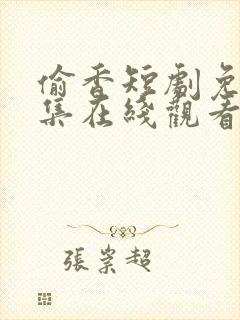 偷香短劇免
集在綫觀看
張崇超